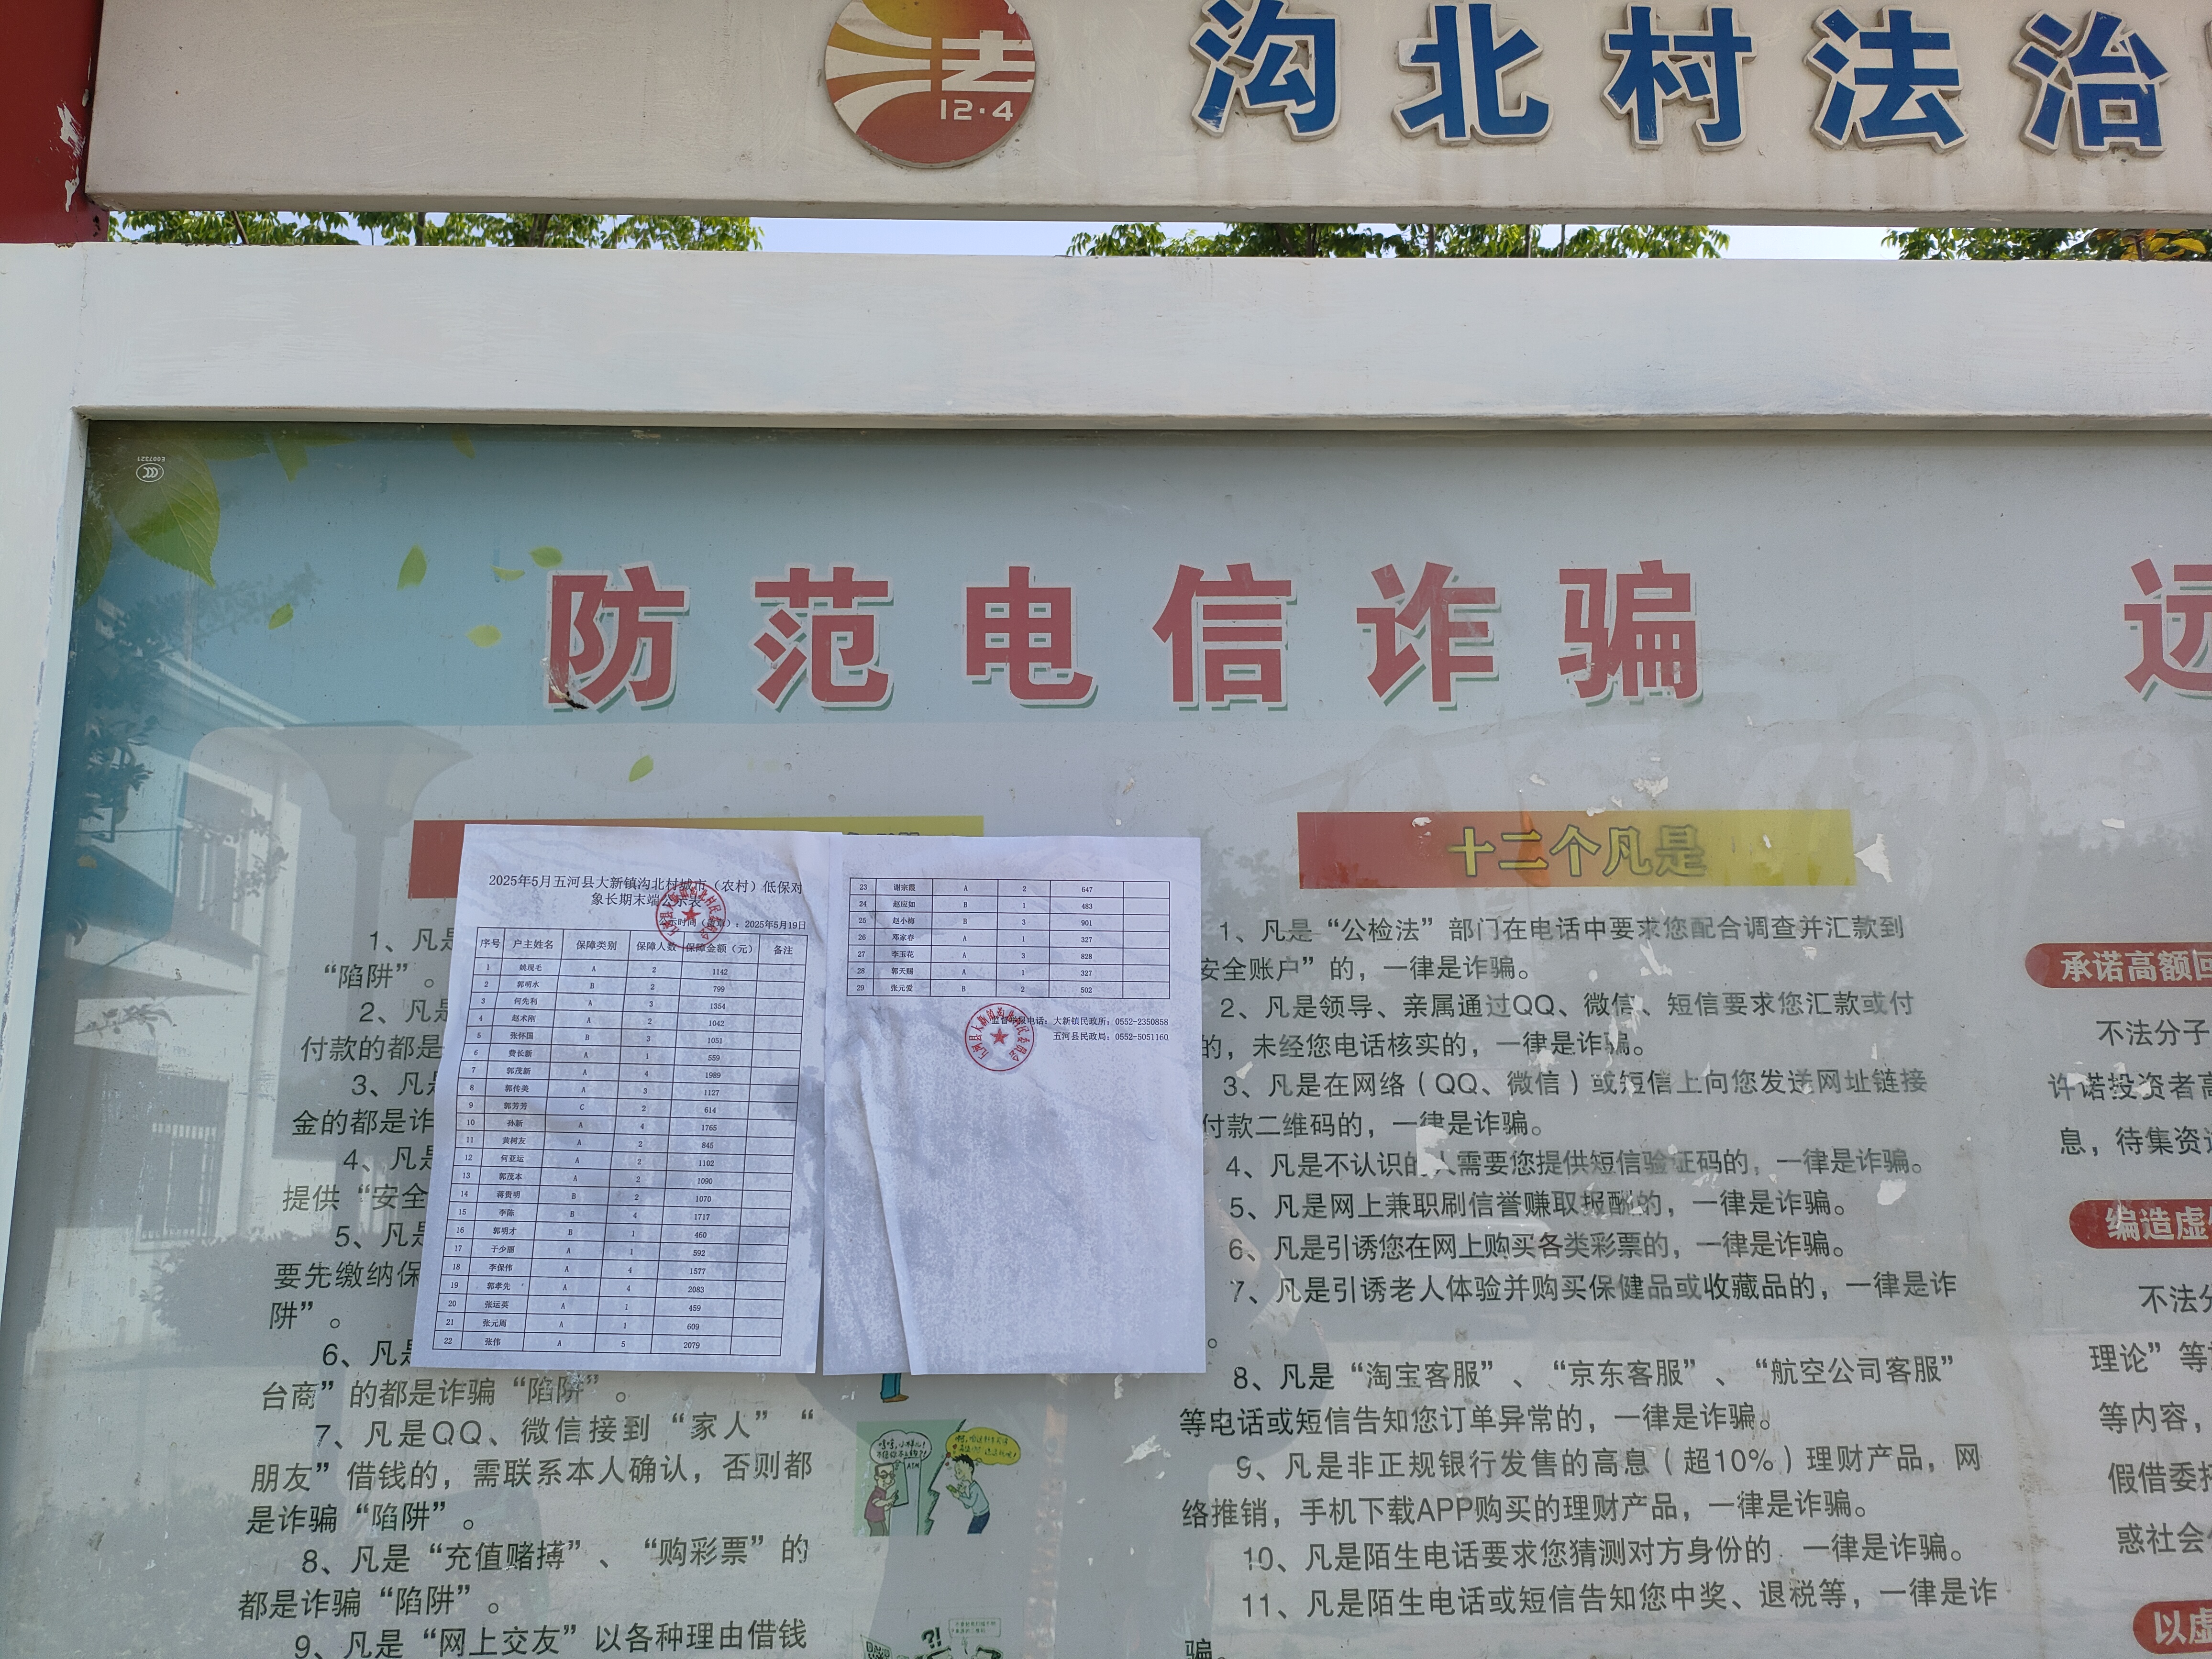 法
12·4
沟北村法治
E007321
防范电信诈骗
远
2025年5月五河县大新镇沟北村城市（农村）低保对
象长期末端公示表
公示时间（盖章）：2025年5月19日
序号 户主姓名 保障类别 保障人数 保障金额（元） 备注
1 姚现毛 A 2 1142
2 郭明水 B 2 799
3 何先利 A 3 1354
4 赵术刚 A 2 1042
5 张怀国 B 3 1051
6 费长新 A 1 559
7 郭茂新 A 4 1989
8 郭传美 A 3 1127
9 郭芳芳 C 2 614
10 孙新 A 4 1765
11 黄树友 A 2 845
12 何亚运 A 2 1102
13 郭茂本 A 2 1090
14 蒋贵明 B 2 1070
15 李陈 B 4 1717
16 郭明才 B 1 460
17 于少丽 A 1 592
18 李保伟 A 4 1577
19 郭孝先 A 4 2083
20 张运英 A 1 459
21 张元周 A 1 609
22 张伟 A 5 2079
23 谢宗霞 A 2 647
24 赵应如 B 1 483
25 赵小梅 B 3 901
26 邓家春 A 1 327
27 李玉花 A 3 828
28 郭天赐 A 1 327
29 张元爱 B 2 502
监督举报电话：大新镇民政所：0552-2350858
五河县民政局：0552-5051160
1、凡是
“陷阱”。
2、凡是
付款的都是
3、凡是
金的都是诈
4、凡是
提供“安全
5、凡是
要先缴纳保
阱”。
6、凡是
台商”的都是诈骗“陷阱”。
7、凡是QQ、微信接到“家人”“
朋友”借钱的，需联系本人确认，否则都
是诈骗“陷阱”。
8、凡是“充值赌搏”、“购彩票”的
都是诈骗“陷阱”。
9、凡是“网上交友”以各种理由借钱
十二个凡是
1、凡是“公检法”部门在电话中要求您配合调查并汇款到
安全账户”的，一律是诈骗。
2、凡是领导、亲属通过QQ、微信、短信要求您汇款或付
的，未经您电话核实的，一律是诈骗。
3、凡是在网络（QQ、微信）或短信上向您发送网址链接
付款二维码的，一律是诈骗。
4、凡是不认识的人需要您提供短信验证码的，一律是诈骗。
5、凡是网上兼职刷信誉赚取报酬的，一律是诈骗。
6、凡是引诱您在网上购买各类彩票的，一律是诈骗。
7、凡是引诱老人体验并购买保健品或收藏品的，一律是诈
。
8、凡是“淘宝客服”、“京东客服”、“航空公司客服”
等电话或短信告知您订单异常的，一律是诈骗。
9、凡是非正规银行发售的高息（超10%）理财产品，网
络推销，手机下载APP购买的理财产品，一律是诈骗。
10、凡是陌生电话要求您猜测对方身份的，一律是诈骗。
11、凡是陌生电话或短信告知您中奖、退税等，一律是诈
骗。
承诺高额回
不法分子
许诺投资者高
息，待集资
编造虚
不法分
理论”等
等内容，
假借委托
惑社会
以虚